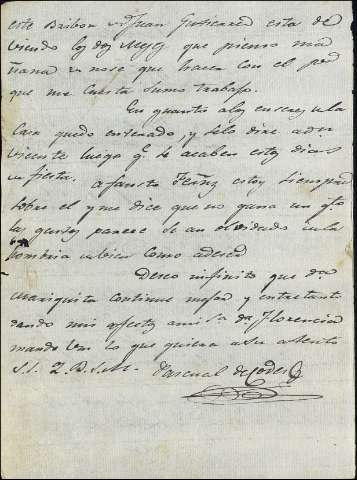 este Bribon de Juan Gutierrez esta de
viendo los dos Reyes que pienso ma
ñana no se que hacer con el por
que me cuesta sumo trabajo.
En quanto a los enseres de la
Casa quedo enterado, y selo dire a dn
Vicente luego q.e se acaben estos dias
de fiesta. A fausto Frñz estoy siempre
sobre el y me dice que no gana un qto
la gente parece se an olvidado de la
como a
Deseo infinito que da
Mariquita continue mejor y entretanto
dando mis afectos a mi Sa da Florencia
mande Vm lo que quiera a su atento
S. S. Q. B. S. M. Pascual de